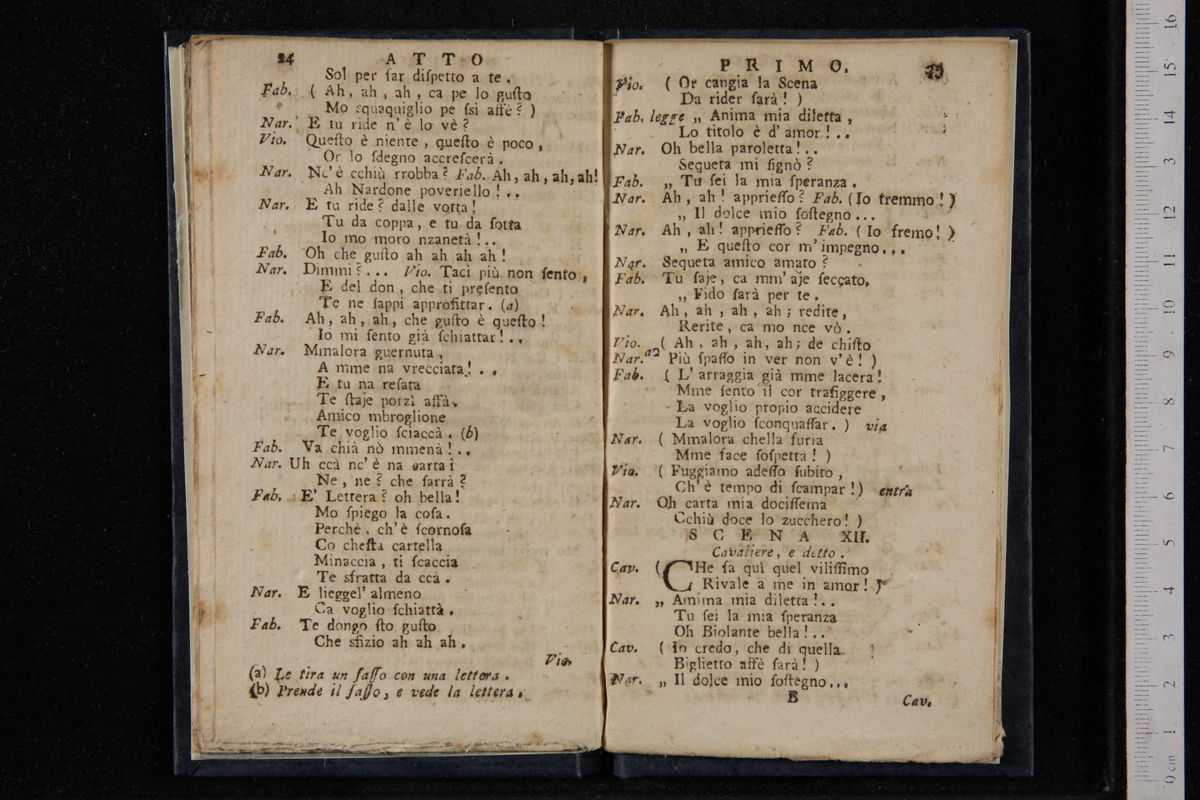 24 A T T O
Sol per far diſpetto a te.
Fab. ( Ah, ah, ah, ca pe lo guſto
Mo squaquiglio pe ſsi affè? )
Nar. E tu ride n'è lo vè?
Vio. Queſto è niente, queſto è poco,
Or lo ſdegno accreſcerà.
Nar. Nc'è cchiù rrobba? Fab. Ah, ah, ah, ah!
Ah Nardone poveriello!..
Nar. E tu ride? dalle votta!
Tu da coppa, e tu da ſotta
Io mo moro nzanetà!..
Fab. Oh che guſto ah ah ah ah!
Nar. Dimmi?... Vio. Taci più non ſento,
E del don, che ti preſento
Te ne ſappi approfittar. (a)
Fab. Ah, ah, ah, che guſto è queſto!
Io mi ſento già ſchiattar!..
Nar. Mmalora guernuta,
A mme na vrecciata!..
E tu na reſata
Te ſtaje porzì affà.
Amico mbroglione
Te voglio ſciaccà. (b)
Fab. Va chià nò mmenà!..
Nar. Uh ccà nc'è na carta i
Ne, ne? che ſarrà?
Fab. E' Lettera? oh bella!
Mo ſpiego la coſa.
Perchè, ch'è ſcornoſa
Co cheſta cartella
Minaccia, ti ſcaccia
Te sfratta da ccà.
Nar. E lieggel' almeno
Ca voglio ſchiattà.
Fab. Te dongo ſto guſto
Che sfizio ah ah ah.
Vio.
(a) Le tira un ſaſſo con una lettera.
(b) Prende il ſaſſo, e vede la lettera.
P R I M O. 25
Vio. ( Or cangia la Scena
Da rider ſarà! )
Fab. legge „ Anima mia diletta,
Lo titolo è d' amor!..
Nar. Oh bella paroletta!..
Sequeta mi ſignò?
Fab. „ Tu ſei la mia ſperanza.
Nar. Ah, ah! apprieſſo? Fab. (Io tremmo!)
„ Il dolce mio ſoſtegno...
Nar. Ah, ah! apprieſſo? Fab. ( Io fremo! )
„ E queſto cor m' impegno...
Nar. Sequeta amico amato?
Fab. Tu ſaje, ca mm' aje ſeccato,
„ Fido ſarà per te.
Nar. Ah, ah, ah, ah; redite,
Rerite, ca mo nce vò.
Vio. ( Ah, ah, ah, ah; de chiſto
Nar. a2 Più ſpaſſo in ver non v'è! )
Fab. ( L' arraggia già mme lacera!
Mme ſento il cor trafiggere,
La voglio propio accidere
La voglio ſconquaſſar. ) via
Nar. ( Mmalora chella furia
Mme face ſoſpetta! )
Vio. ( Fuggiamo adeſſo ſubito,
Ch' è tempo di ſcampar!) entra
Nar. Oh carta mia dociſſema
Cchiù doce lo zucchero! )
S C E N A XII.
Cavaliere, e detto.
Cav. ( CHe fa quì quel viliſſimo
Rivale a me in amor! )
Nar. „ Amima mia diletta!..
Tu ſei la mia ſperanza
Oh Biolante bella!..
Cav. ( Io credo, che di quella
Biglietto affè ſarà! )
Nar. „ Il dolce mio ſoſtegno...
B Cav.
0 cm 1 2 3 4 5 6 7 8 9 10 11 12 13 14 15 16